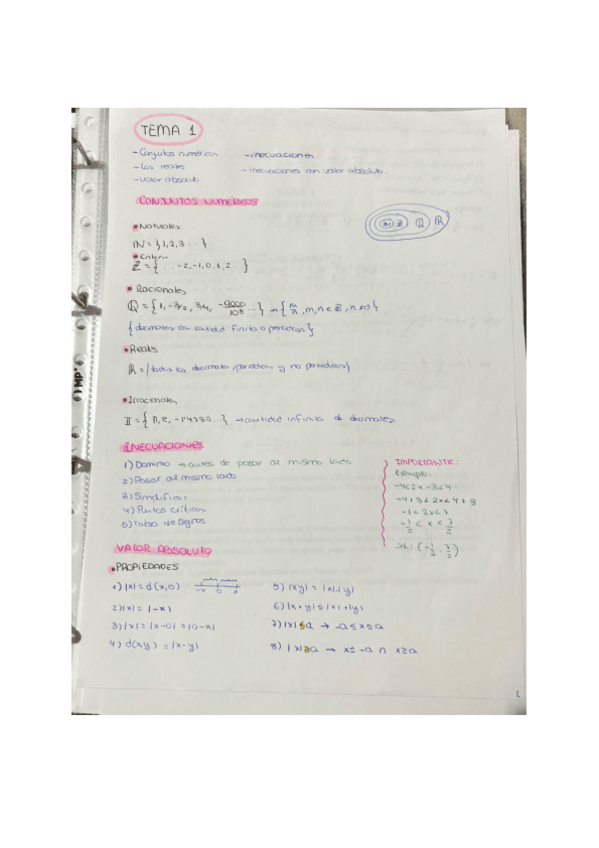 TEMA 1
- Conjuntos numéricos
- Los reales
- Valor absoluto
- inecuaciones
- inecuaciones con valor absoluto.
CONJUNTOS NUMÉRICOS
• Naturales
IN = {1,2,3 ...}
N Z Q R
• Enteros
Z = {... -2,-1,0,1,2...}
• Racionales
Q = {1, -3/2, 3/4, -9000/103 ...} → {m/n, m,n ∈ Z, n≠0}
{decimales con cantidad finita o periódicas}
• Reales
R = {todos los decimales, periódicos y no periódicos}
• Irracionales
II = {π, e, ...} → cantidad infinita de decimales
INECUACIONES
1) Dominio → antes de pasar al mismo lado
2) Pasar al mismo lado
3) Simplificar
4) Puntos críticos
5) Tabla de signos
IMPORTANTE:
Ejemplo:
-4<2x-3<4
-4+3<2x<4+3
-1<2x<7
-1/2 < x < 7/2
sol: (-1/2, 7/2)
VALOR ABSOLUTO
• PROPIEDADES
1) |x| = d(x,0)
-x 0 x
2) |x| = |-x|
3) |x| = |x-0| = |0-x|
4) d(x,y) = |x-y|
5) |xy| = |x|.|y|
6) |x+y| ≤ |x|+|y|
7) |x| ≤ a → -a ≤ x ≤ a
8) |x| ≥ a → x ≤ -a ∩ x ≥ a
1